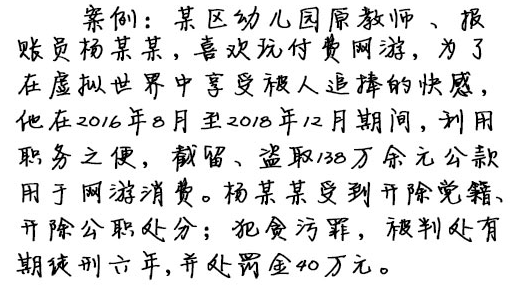 案例：某区幼儿园原教师、报
账员杨某某，喜欢玩付费网游，为了
在虚拟世界中享受被人追捧的快感，
他在2016年8月至2018年12月期间，利用
职务之便，截留、盗取138万余元公款
用于网游消费。杨某某受到开除党籍、
开除公职处分；犯贪污罪，被判处有
期徒刑六年，并处罚金40万元。